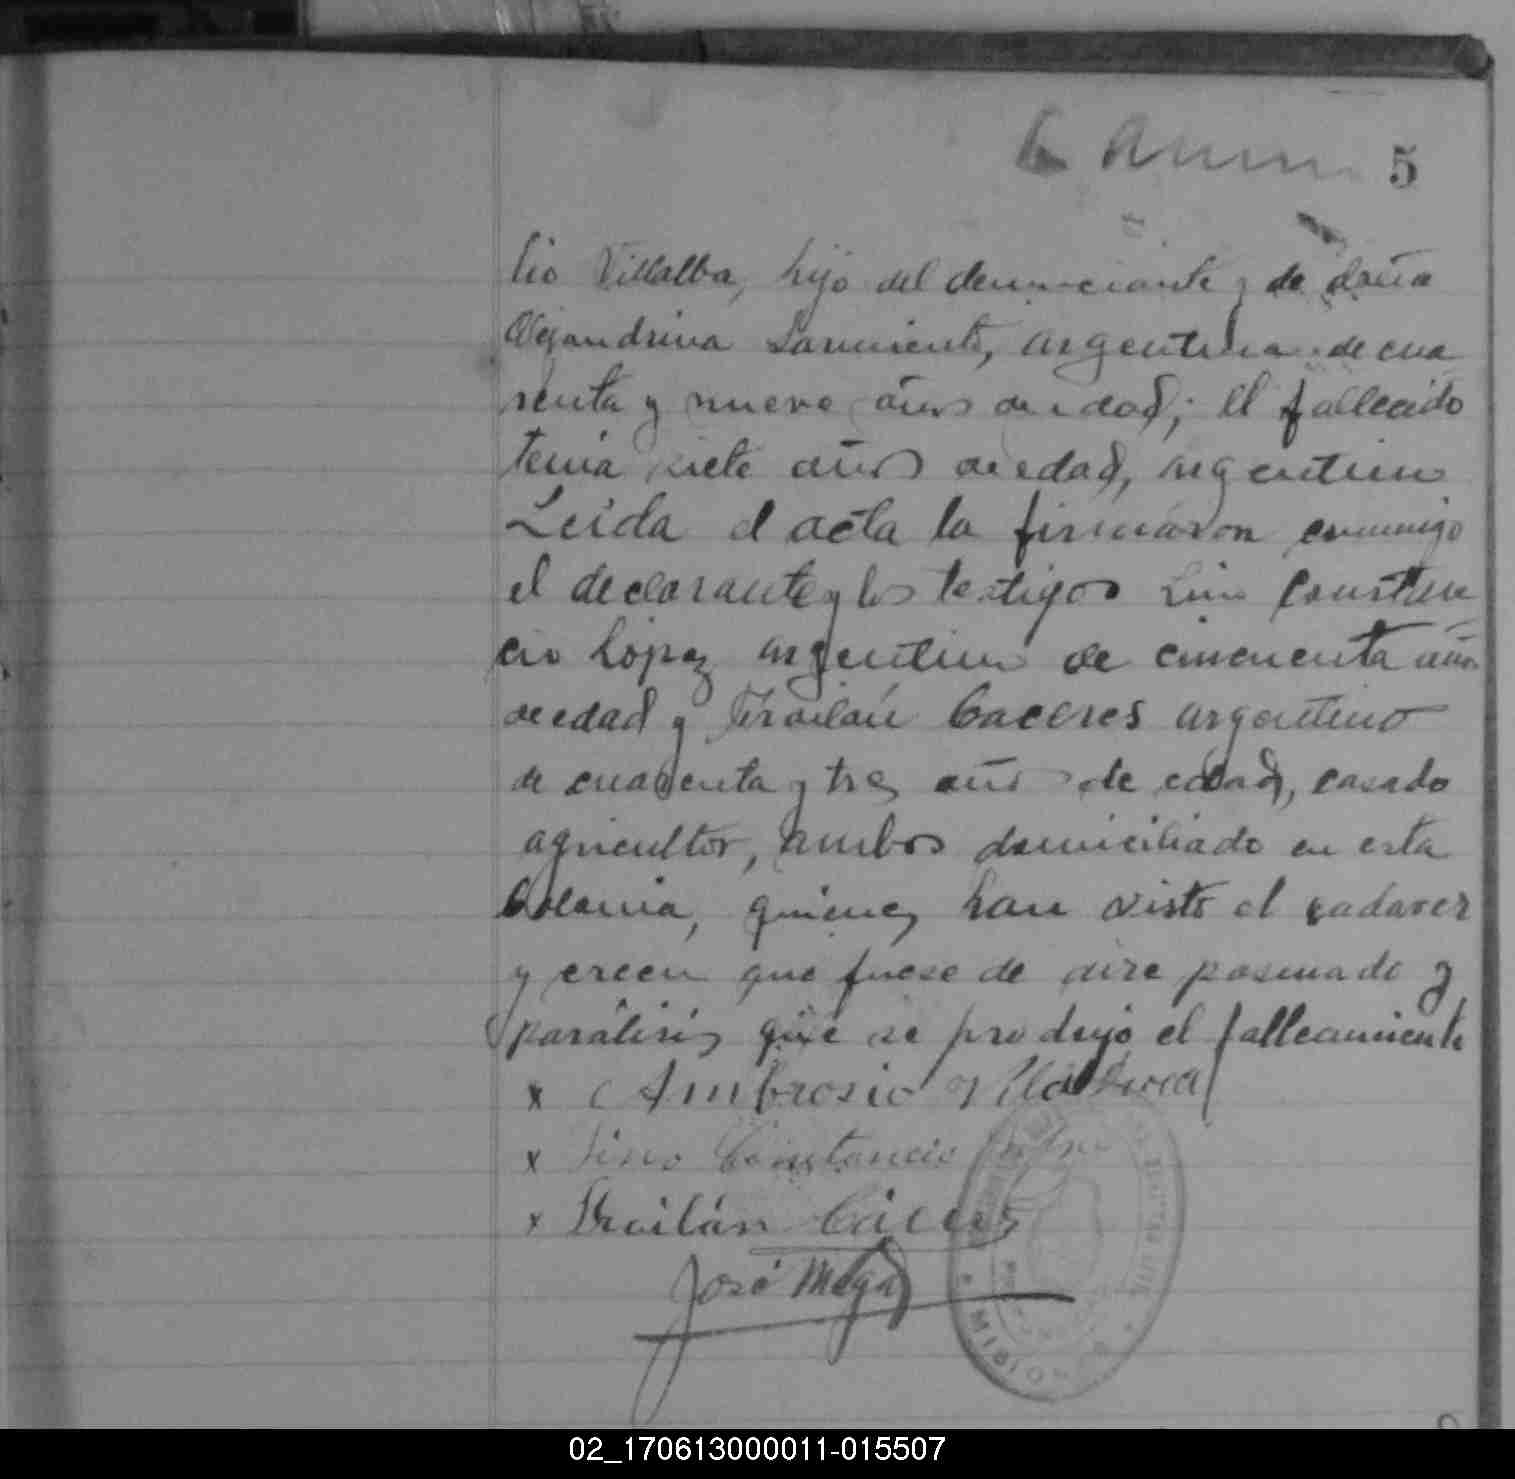 5
lio Villalba, hijo del denunciante y de doña
Alejandrina Sarmiento, argentina de cua
renta y nueve años de edad; el fallecido
tenia siete años de edad, argentino
Leida el acta la firmaron conmigo
el declarante y los testigos Lino Constan
cio López argentino de cincuenta años
de edad y Froilán Caceres argentino
de cuarenta y tres años de edad, casado
agricultor, ambos domiciliado en esta
Colonia, quienes han visto el cadaver
y creen que fuese de aire pasmado y
parálisis que se produjo el fallecimiento
x Ambrosio Villalba
x Lino Constancio
x Froilán Cáceres
José Moya
02_170613000011-015507